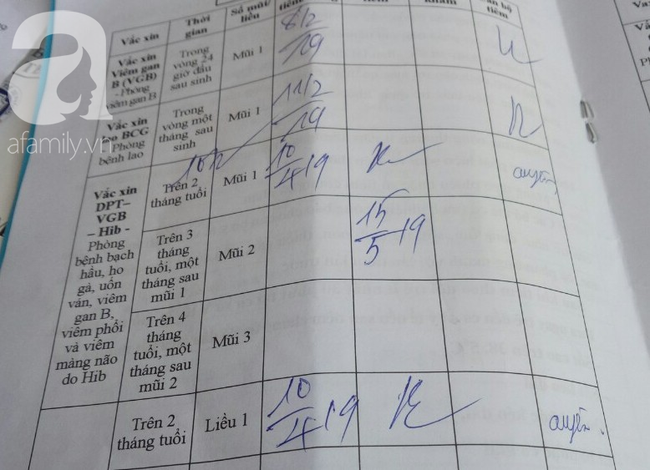 Vắc xin
Thời
gian
Số mũi/
liều
tiêm
khám
Vắc xin
Viêm gan
B (VGB)
Trong
vòng 24
giờ đầu
sau sinh
Mũi 1
8/2
19
Vắc xin
BCG
Phòng
bệnh lao
Trong
vòng một
tháng sau
sinh
Mũi 1
11/2
19
a
afamily.vn
Vắc xin
DPT–
VGB
– Hib -
Phòng
bệnh bạch
hầu, ho
gà, uốn
ván, viêm
gan B,
viêm phổi
và viêm
màng não
do Hib
Trên 2
tháng tuổi
Mũi 1
10/4 19
Trên 3
tháng
tuổi, một
tháng sau
mũi 1
Mũi 2
15/5 19
Trên 4
tháng
tuổi, một
tháng sau
mũi 2
Mũi 3
Trên 2
tháng tuổi
Liều 1
10/4 19